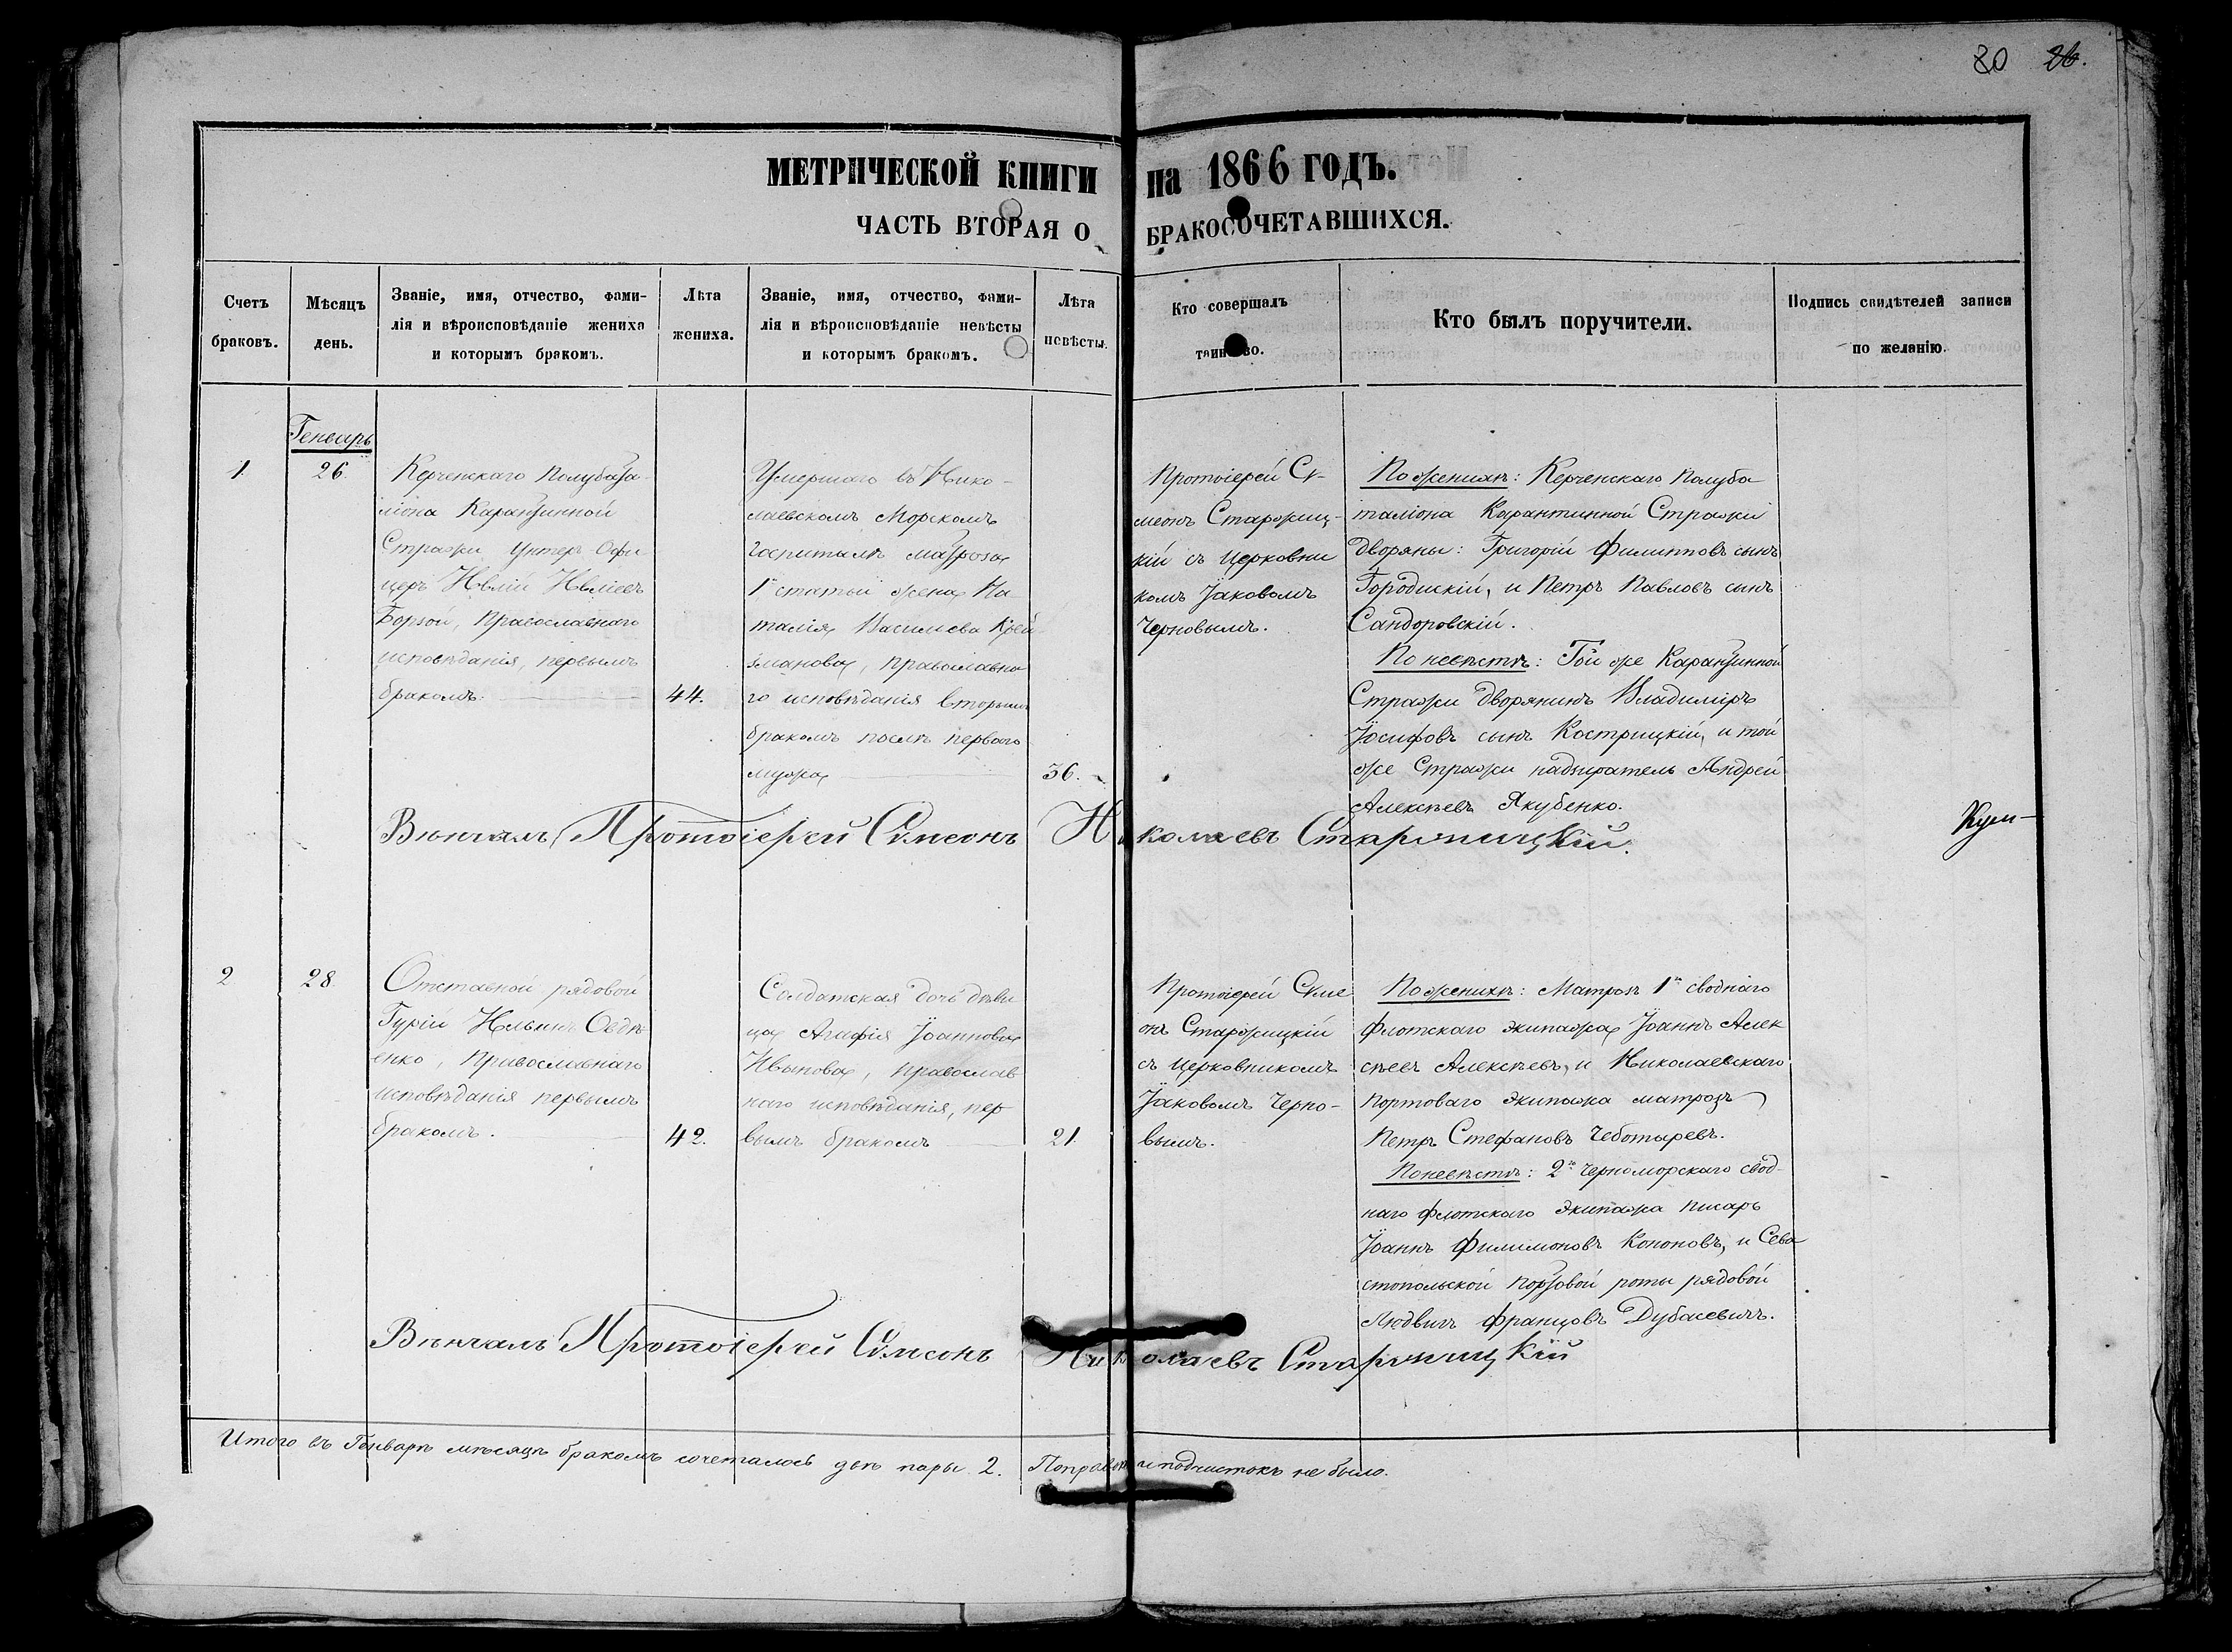 80 26.
МЕТРИЧЕСКОЙ КНИГИ на 1866 ГОДЪ.
ЧАСТЬ ВТОРАЯ О БРАКОСОЧЕТАВШИХСЯ.
Счетъ
браковъ.
Мѣсяцъ
день.
Званіе, имя, отчество, фами-
лія и вѣроисповѣданіе жениха
и которымъ бракомъ.
Лѣта
жениха.
Званіе, имя, отчество, фами-
лія и вѣроисповѣданіе невѣсты
и которымъ бракомъ.
Лѣта
невѣсты.
Кто совершалъ
таинство.
Кто былъ поручители.
Подпись свидѣтелей записи
по желанію.
Генварь
1
26.
Керченскаго Полубата-
ліона Карантинной
Стражи Унтеръ-Офи
церъ
Борзой, Православнаго
исповѣданія, первымъ
бракомъ.
44.
Умершаго въ Нико-
лаевскомъ Морскомъ
госпиталѣ матроза
1й статьи жена На
талія Васильева
православна-
го исповѣданія вторымъ
бракомъ послѣ перваго
мужа
36.
Протоіерей Сѵ-
меонъ Старжиц-
кій съ церковни
комъ Іаковомъ
Черновымъ.
По женихѣ: Керченскаго Полуба
таліона Карантинной Стражи
дворяны: Григорій Филипповъ сынъ
Городискій, и Петръ Павловъ сынъ
Сандоровскій.
По невѣстѣ: Той же Карантинной
Стражи дворянинъ Владиміръ
Іосифовъ сынъ Кострицкій, и той
же Стражи надзиратель Андрей
Алексѣевъ Якубенко.
Вѣнчалъ Протоіерей Сѵмеонъ Николаевъ Старжицкій.
2
28.
Отставной рядовой
Гурій Ильинъ Овдѣ
енко, Православнаго
исповѣданія первымъ
бракомъ.
42.
Солдатская дочь дѣви
ца Агафія Іоаннова
Иванова, православ
наго исповѣданія, пер
вымъ бракомъ
21.
Протоіерей Сѵме
онъ Старжицкій
съ церковникомъ
Іаковомъ Черно-
вымъ.
По женихѣ: Матрозъ 1го своднаго
флотскаго экипажа Іоаннъ Алек
сѣевъ Алексѣевъ, и Николаевскаго
портоваго экипажа матрозъ
Петръ Стефановъ Чеботыревъ.
По невѣстѣ: 2го Черноморскаго свод-
наго флотскаго экипажа писарь
Іоаннъ Филимоновъ Кононовъ, и Сева
стопольской портовой роты рядовой
Людвигъ Францовъ Дубасевичъ.
Вѣнчалъ Протоіерей Сѵмеонъ Николаевъ Старжицкій
Итого въ Генварѣ мѣсяцѣ бракомъ сочеталось двѣ пары 2. Поправокъ и подчистокъ не было.